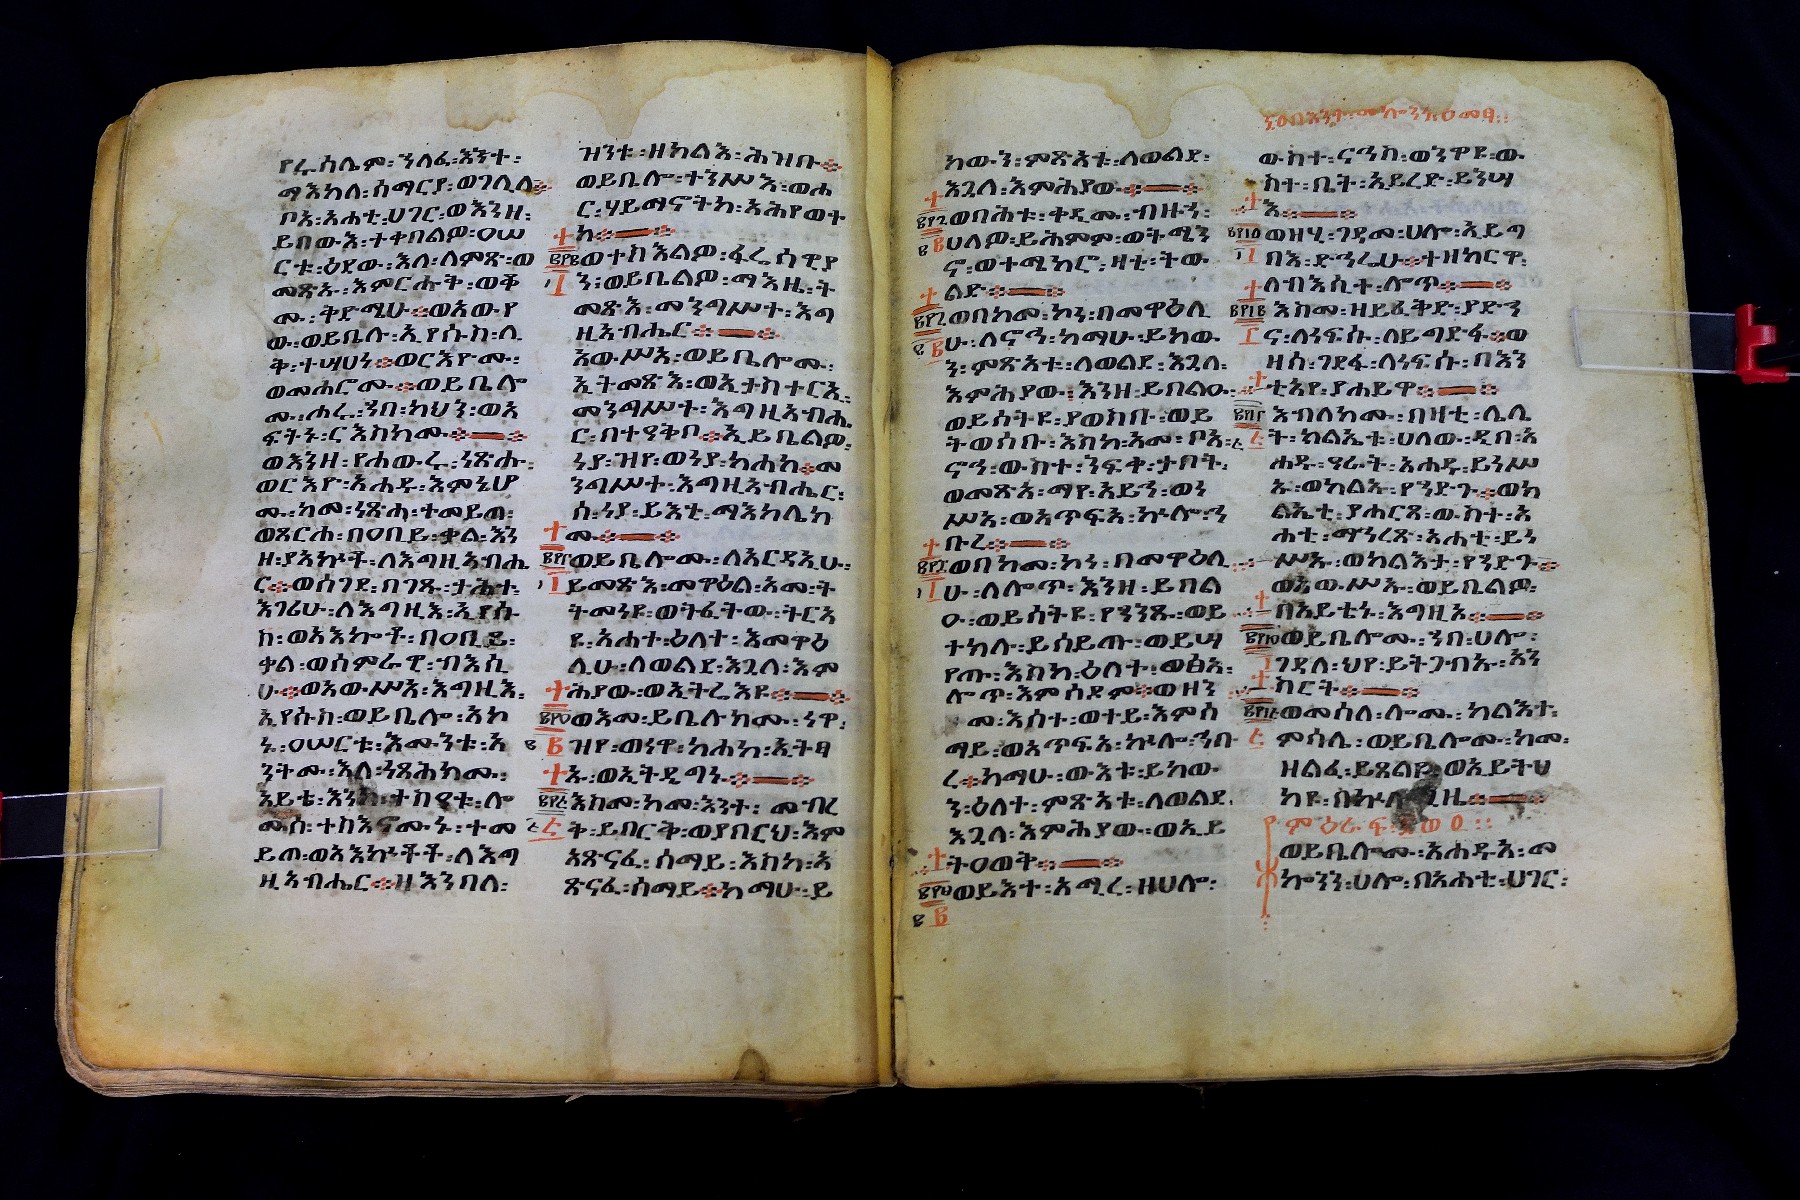 የሩሳሌም፡ኀለፈ፡እንተ፡
ማእከለ፡ሰማርያ፡ወገሊላ፨
ቦአ፡አሐቲ፡ሀገር፡ወእንዘ፡
ይበውእ፡ተቀበልዎ፡ዐሠ
ርቱ፡ዕደው፡እለ፡ለምጽ፡ወ
መጽኡ፡እምርሑቅ፡ወቆ
ሙ፡ቅድሜሁ፨ወአውየ
ው፡ወይቤሉ፡ኢየሱስ፡ሊ
ቅ፡ተሣሀነ፨ወርእዮሙ፡
ወመሐሮሙ፨ወይቤሎ
ሙ፡ሐሩ፡ኀበ፡ካህን፡ወአ
ፍትኑ፡ርእስክሙ፨
ወእንዘ፡የሐውሩ፡ነጽሑ፡
ወርእዮ፡አሐዱ፡እምኔሆ
ሙ፡ከመ፡ነጽሐ፡ተመይጠ፡
ወጸርሐ፡በዐቢይ፡ቃል፡እን
ዘ፡ያአኵት፡ለእግዚአብሔ
ር፨ወሰገደ፡በገጹ፡ታሕተ፡
እገሪሁ፡ለእግዚእ፡ኢየሱ
ስ፡ወአእኰቶ፡በዐቢይ፡
ቃል፡ወሳምራዊ፡ብእሲ
ሁ፨ወአውሥአ፡እግዚእ፡
ኢየሱስ፡ወይቤሎ፡አኮ
ኑ፡ዐሠርቱ፡እሙንቱ፡አ
ንትሙ፡እለ፡ነጻሕክሙ፡
አይቴ፡እንከ፡ተስዓቱ፡ሎ
ሙ፡ስ፡ተስእኖሙኑ፡ተመ
ይጠ፡ወአእኵቶቶ፡ለእግ
ዚአብሔር፨ዘእንበለ፡
ዝንቱ፡ዘካልእ፡ሕዝቡ፨
ወይቤሎ፡ተንሥእ፡ወሐ
ር፡ሃይማኖትከ፡አሕየወተ
ከ፨
ወተስእልዎ፡ፈሪሳዊያ
ን፡ወይቤልዎ፡ማእዜ፡ት
መጽእ፡መንግሥተ፡እግ
ዚአብሔር፨
አውሥአ፡ወይቤሎሙ፡
ኢትመጽእ፡ወኢታስተርኢ፡
መንግሥተ፡እግዚአብሔ
ር፡በተዓቅቦ፨ኢይቤልዎ፡
ነያ፡ዝየ፡ወነያ፡ካሐከ፨መ
ንግሥተ፡እግዚአብሔር፡
ሰ፡ነያ፡ይእቲ፡ማእከሌክ
ሙ፨
ወይቤሎሙ፡ለአርዳኢሁ፡
ይመጽእ፡መዋዕል፡አመ፡ት
ትመነዩ፡ወትፈትው፡ትርአ
ዩ፡አሐተ፡ዕለተ፡እመዋዕ
ሊሁ፡ለወልደ፡እጓለ፡እም
ሕያው፡ወኢትሬእዩ፨
ወእመ፡ይቤሉክሙ፡ነዋ፡
ዝየ፡ወነዋ፡ካሐክ፡ኢትፃ
ኡ፡ወኢትዲግኑ፨
እስመ፡ከመ፡እንተ፡መብረ
ቅ፡ይበርቅ፡ወያበርህ፡እም
አጽናፈ፡ሰማይ፡እስከ፡አ
ጽናፈ፡ሰማይ፨ከማሁ፡ይ
ከውን፡ምጽአቱ፡ለወልደ፡
እጓለ፡እምሕያው፨
ወበሕቱ፡ቀዲሙ፡ብዙኅ፡
ሀለዎ፡ይሕምም፡ወትሜን
ኖ፡ወተሜክሮ፡ዛቲ፡ትው
ልድ፨
ወበከመ፡ኮነ፡በመዋዕሊ
ሁ፡ለኖኅ፡ከማሁ፡ይከው
ን፡ምጽአቱ፡ለወልደ፡እጓለ፡
እምሕያው፡እንዘ፡ይበልዑ፡
ወይሰትዩ፡ያወስቡ፡ወይ
ትወሰቡ፡እስከ፡አመ፡ቦአ፡
ኖኅ፡ውስተ፡ንፍቀ፡ታቦት፡
ወመጽአ፡ማየ፡አይኅ፡ወነ
ሥአ፡ወአጥፍአ፡ኵሎ፡ኅ
ቡረ፨
ወበከመ፡ኮነ፡በመዋዕሊ
ሁ፡ለሎጥ፡እንዘ፡ይበል
ዑ፡ወይሰትዩ፡የኀንጹ፡ወይ
ተክሉ፡ይሰይጡ፡ወይሣ
የጡ፡እስከ፡ዕለተ፡ወፅአ፡
ሎጥ፡እምሰዶም፨ወዘን
መ፡እሳተ፡ወተይ፡እምሰ
ማይ፡ወአጥፍአ፡ኵሎ፡ኅቡ
ረ፨ከማሁ፡ውእቱ፡ይከው
ን፡ዕለተ፡ምጽአቱ፡ለወልደ፡
እጓለ፡እምሕያው፡ወኢይ
ትዐወቅ፨
ወይእተ፡አሚረ፡ዘሀሎ፡
ውስተ፡ናሕስ፡ወንዋዩ፡ው
ስተ፡ቤት፡ኢይረድ፡ይንሣ
እ፨
ወዘሂ፡ገዳመ፡ሀሎ፡ኢይግ
በእ፡ድኅሬሁ፨ተዘከርዋ፡
ለብእሲተ፡ሎጥ፨
እስመ፡ዘይፈቅድ፡ያድኅ
ና፡ለነፍሱ፡ለይግድፋ፨ወ
ዘሰ፡ገደፋ፡ለነፍሱ፡በእን
ቲአየ፡ያሐይዋ፨
እብለክሙ፡በዛቲ፡ሌሊ
ት፡ክልኤቱ፡ሀለው፡ዲበ፡አ
ሐዱ፡ዓራት፡አሐዱ፡ይነሥ
ኡ፡ወካልኡ፡የኀድጉ፨ወክ
ልኤቲ፡ያሐርጻ፡ውስተ፡አ
ሐቲ፡ማኅረጽ፡አሐቲ፡ይነ
ሥኡ፡ወካልእታ፡የኀድጉ፨
ወአውሥኡ፡ወይቤልዎ፡
በአይቴኑ፡እግዚአ፨
ወይቤሎሙ፡ኀበ፡ሀሎ፡
ገደላ፡ህየ፡ይትጋብኡ፡አን
ስርት፨
ወመሰለ፡ሎሙ፡ካልእተ፡
ምሳሌ፡ወይቤሎሙ፡ከመ፡
ዘልፈ፡ይጸልዩ፡ወኢይትህ
ከዩ፡በኵሉ፡ጊዜ፨
ወይቤሎሙ፡አሐዱ፡አ፡መ
ኰንን፡ሀሎ፡በአሐቲ፡ሀገር፡